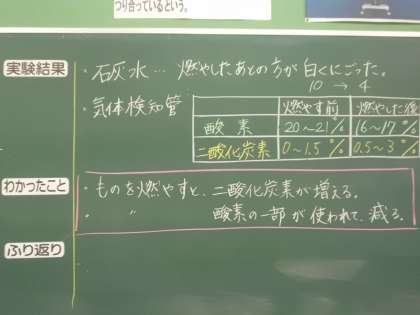 つり合っているという。
実験結果
・石灰水… 燃やしたあとの方が 白くにごった。
10 → 4
・気体検知管
燃やす前 燃やした後
酸素 20~21% 16~17%
二酸化炭素 0~1.5% 0.5~3%
わかったこと
・ものを燃やすと、二酸化炭素が増える。
・ 〃 酸素の一部が使われて、減る。
ふり返り